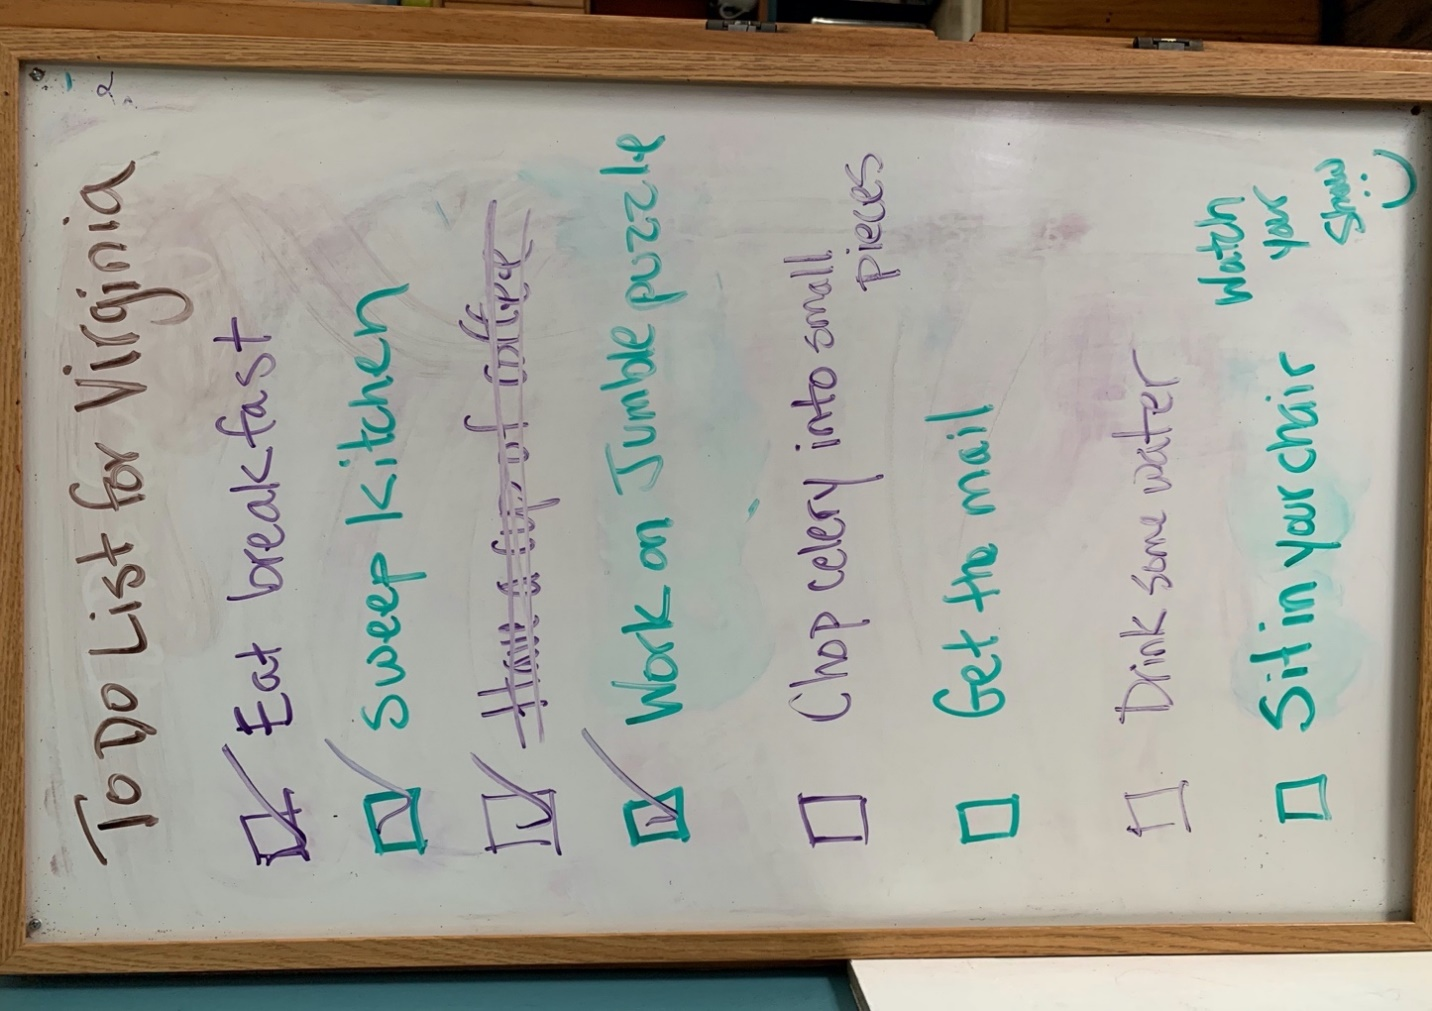 To Do List for Virginia
Eat breakfast
Sweep Kitchen
Have a cup of coffee
Work on Jumble puzzle
Chop celery into small
pieces
Get the mail
Drink some water
Sit in your chair
Watch
your
show